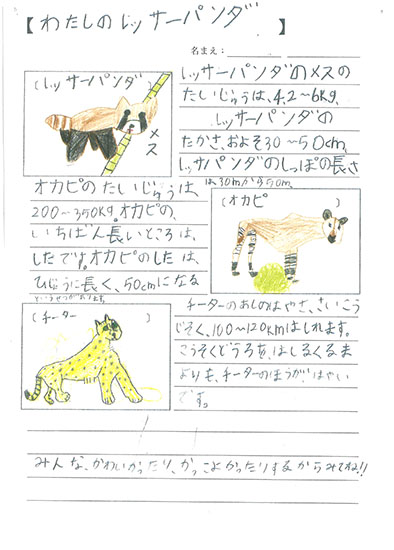 【わたしのレッサーパンダ】
名まえ:
(レッサーパンダ)
メス
レッサーパンダのメスの
たいじゅうは、4.2〜6kg、
レッサーパンダの
たかさ、およそ30〜50cm、
レッサパンダのしっぽの長さ
は30mから50m
オカピのたいじゅうは、
200〜350kg。オカピの、
いちばん長いところは、
したです。オカピのしたは、
ひじょうに長く、50cmになる
というせつがあります。
(オカピ)
(チーター)
チーターのあしのはやさ、さいこう
じそく、100〜120kmはしれます。
こうそくどうろを、はしるくるま
よりも、チーターのほうが、はやい
です。
みんな、かわいかったり、かっこよかったりするからみてね!!